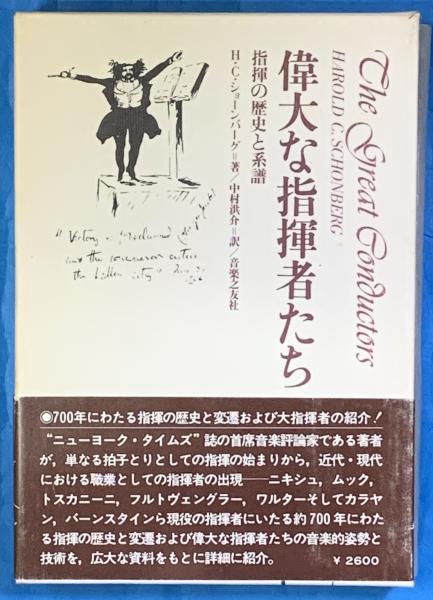 The Great Conductors
HAROLD C. SCHONBERG
偉大な指揮者たち
指揮の歴史と系譜
H・C・ショーンバーグ＝著／中村洪介＝訳／音楽之友社
"Victory
and the
the fallen city"
◎700年にわたる指揮の歴史と変遷および大指揮者の紹介！
“ニューヨーク・タイムズ”誌の首席音楽評論家である著者
が，単なる拍子とりとしての指揮の始まりから，近代・現代
における職業としての指揮者の出現──ニキシュ，ムック，
トスカニーニ，フルトヴェングラー，ワルターそしてカラヤ
ン，バーンスタインら現役の指揮者にいたる約700年にわた
る指揮の歴史と変遷および偉大な指揮者たちの音楽的姿勢と
技術を，広大な資料をもとに詳細に紹介。
￥2600